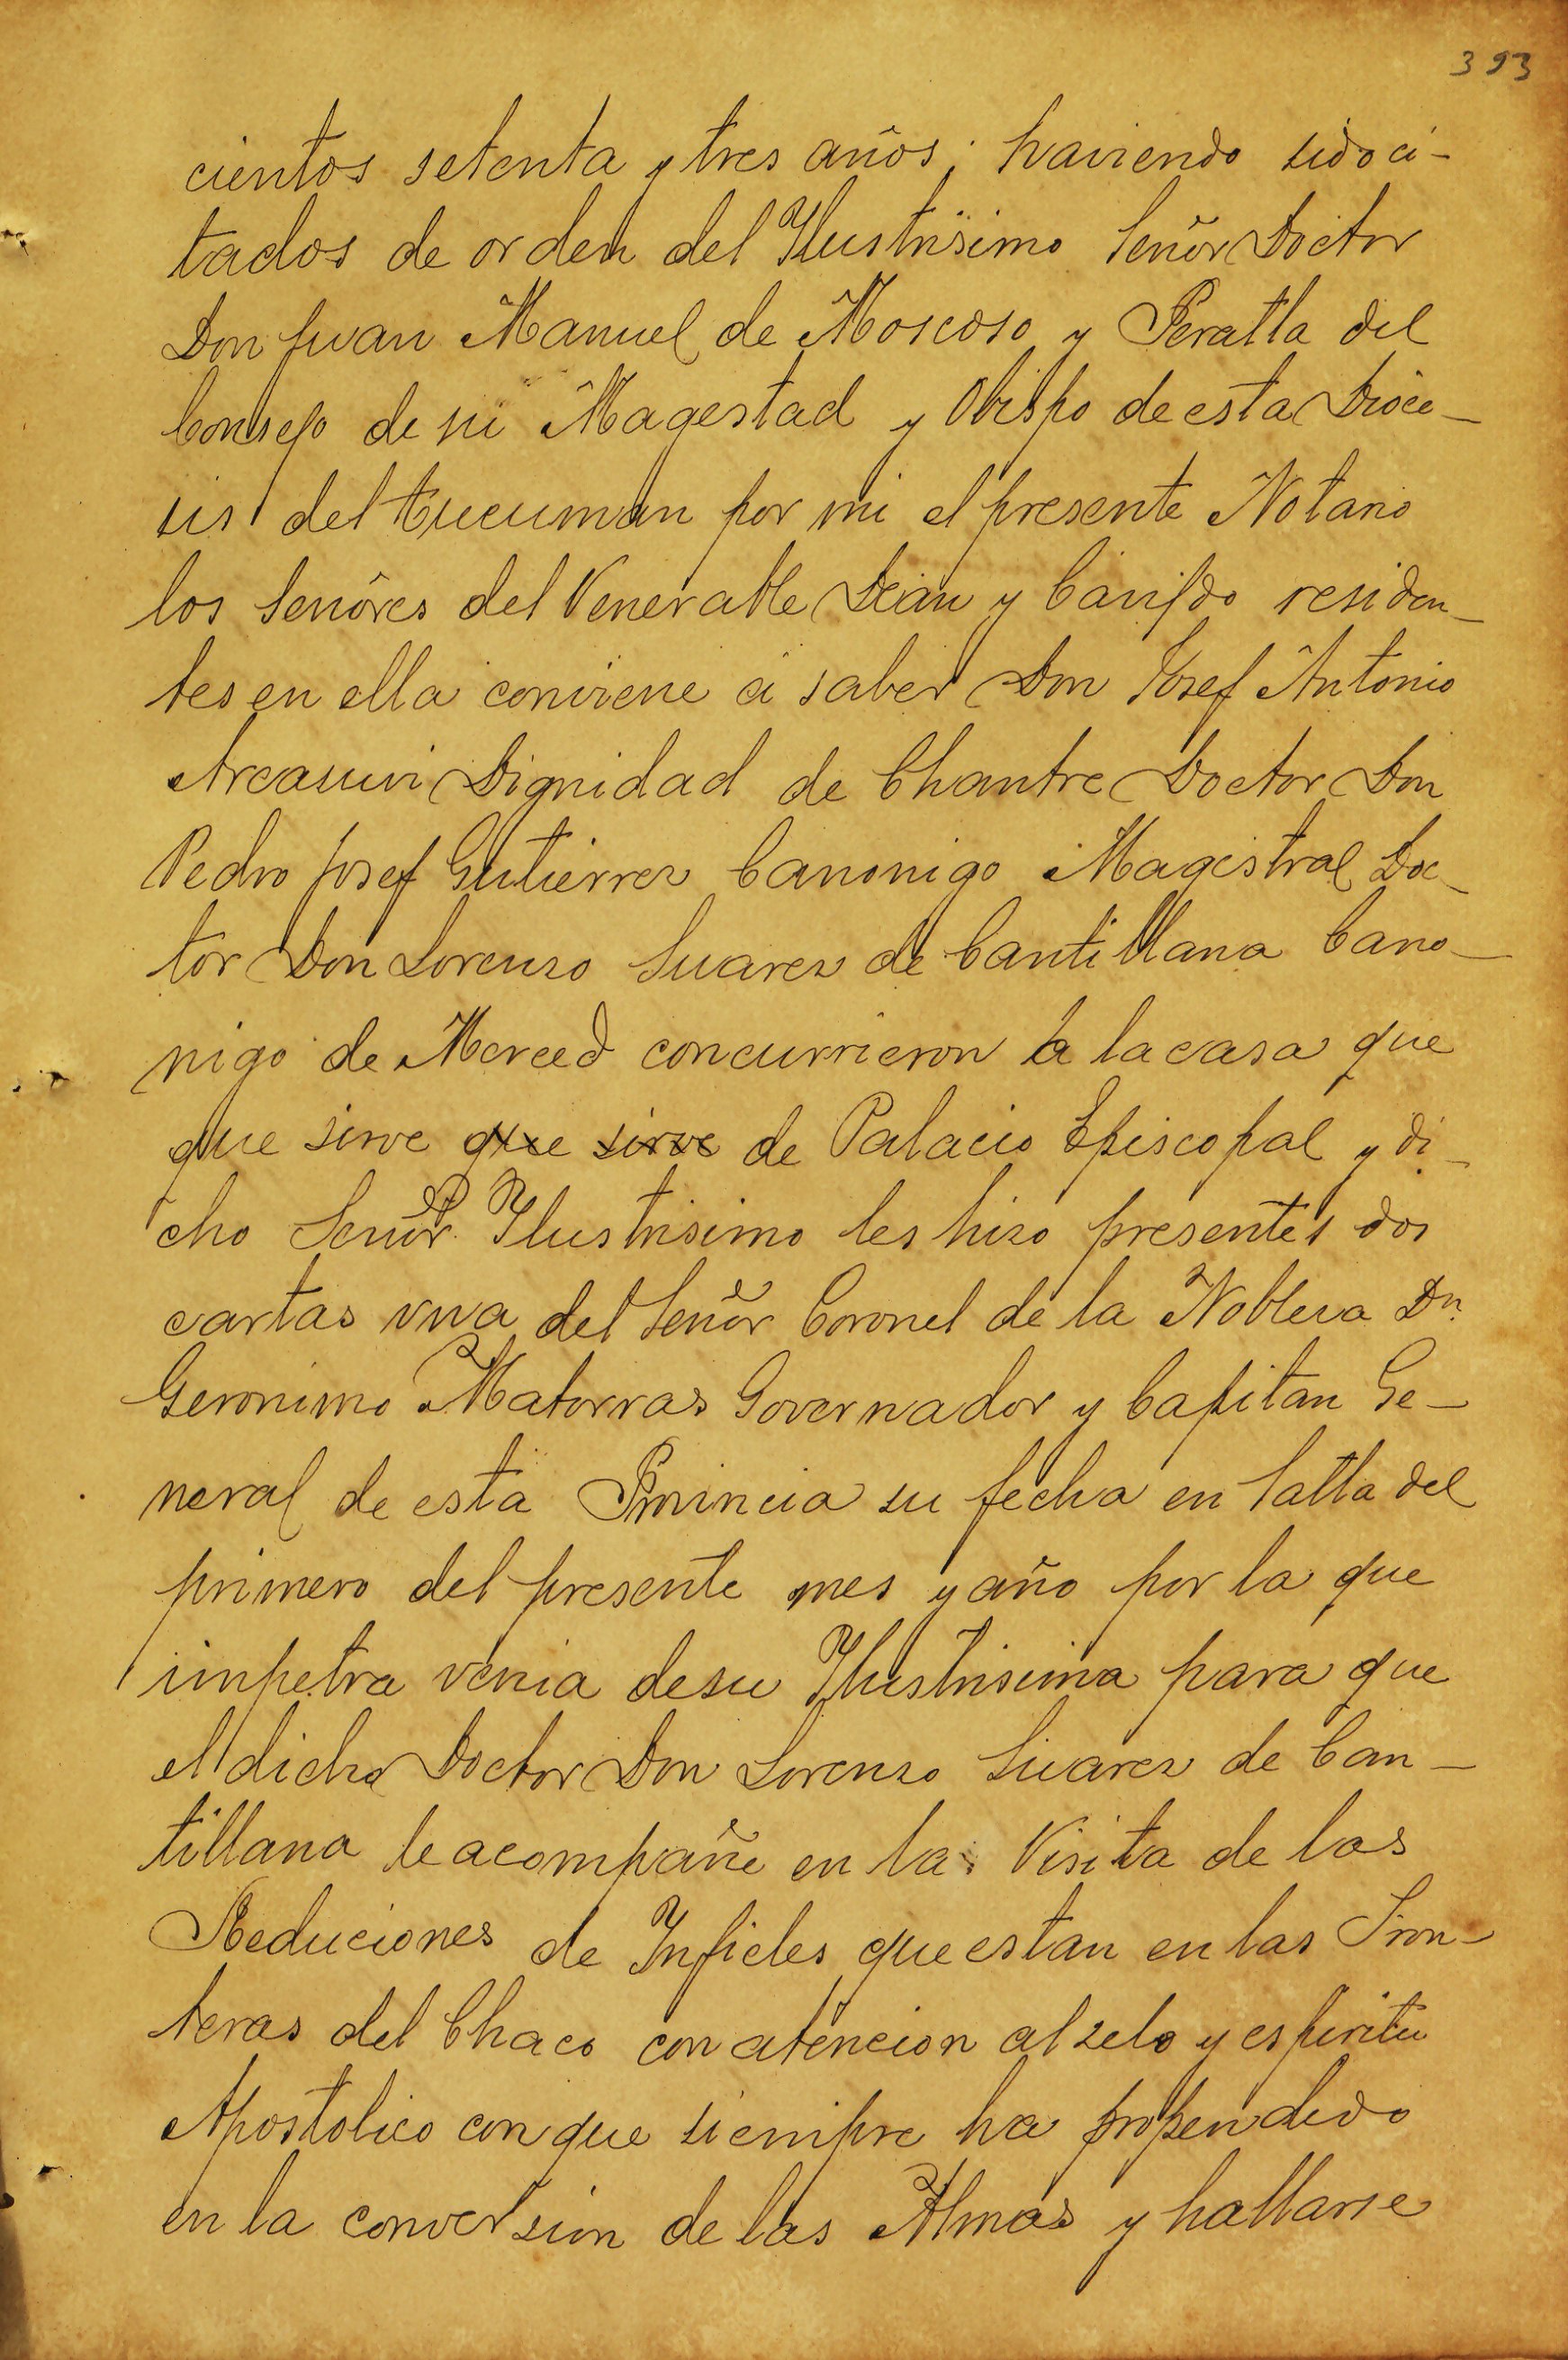 393
cientos setenta y tres años; haviendo sido ci-
tados de orden del Ylustrisimo Señor Doctor
Don Juan Manuel de Moscoso y Peralta del
Consejo de su Magestad y Obispo de esta Dioce-
sis del Tucuman por mi el presente Notario
los Señores del Venerable Dean y Cavildo residen-
tes en ella conviene á saber Don Josef Antonio
Ascasuvi Dignidad de Chantre Doctor Don
Pedro Josef Gutierrez Canonigo Magistral Doc-
tor Don Lorenzo Suarez de Cantillana Cano-
nigo de Merced concurrieron a la casa que
que sirve que sirve de Palacio Episcopal y di-
cho Señor Ylustrisimo les hizo presentes dos
cartas una del Señor Coronel de la Nobleza Dn.
Geronimo Matorras Governador y Capitan Ge-
neral de esta Provincia su fecha en Salta del
primero del presente mes y año por la que
impetra venia de su Ylustrisima para que
el dicho Doctor Don Lorenzo Suarez de Can-
tillana le acompañe en la Visita de las
Reduciones de Infieles que estan en las Fron-
teras del Chaco con atencion al zelo y espiritu
Apostolico con que siempre ha propendido
en la conversion de las Almas y hallarse